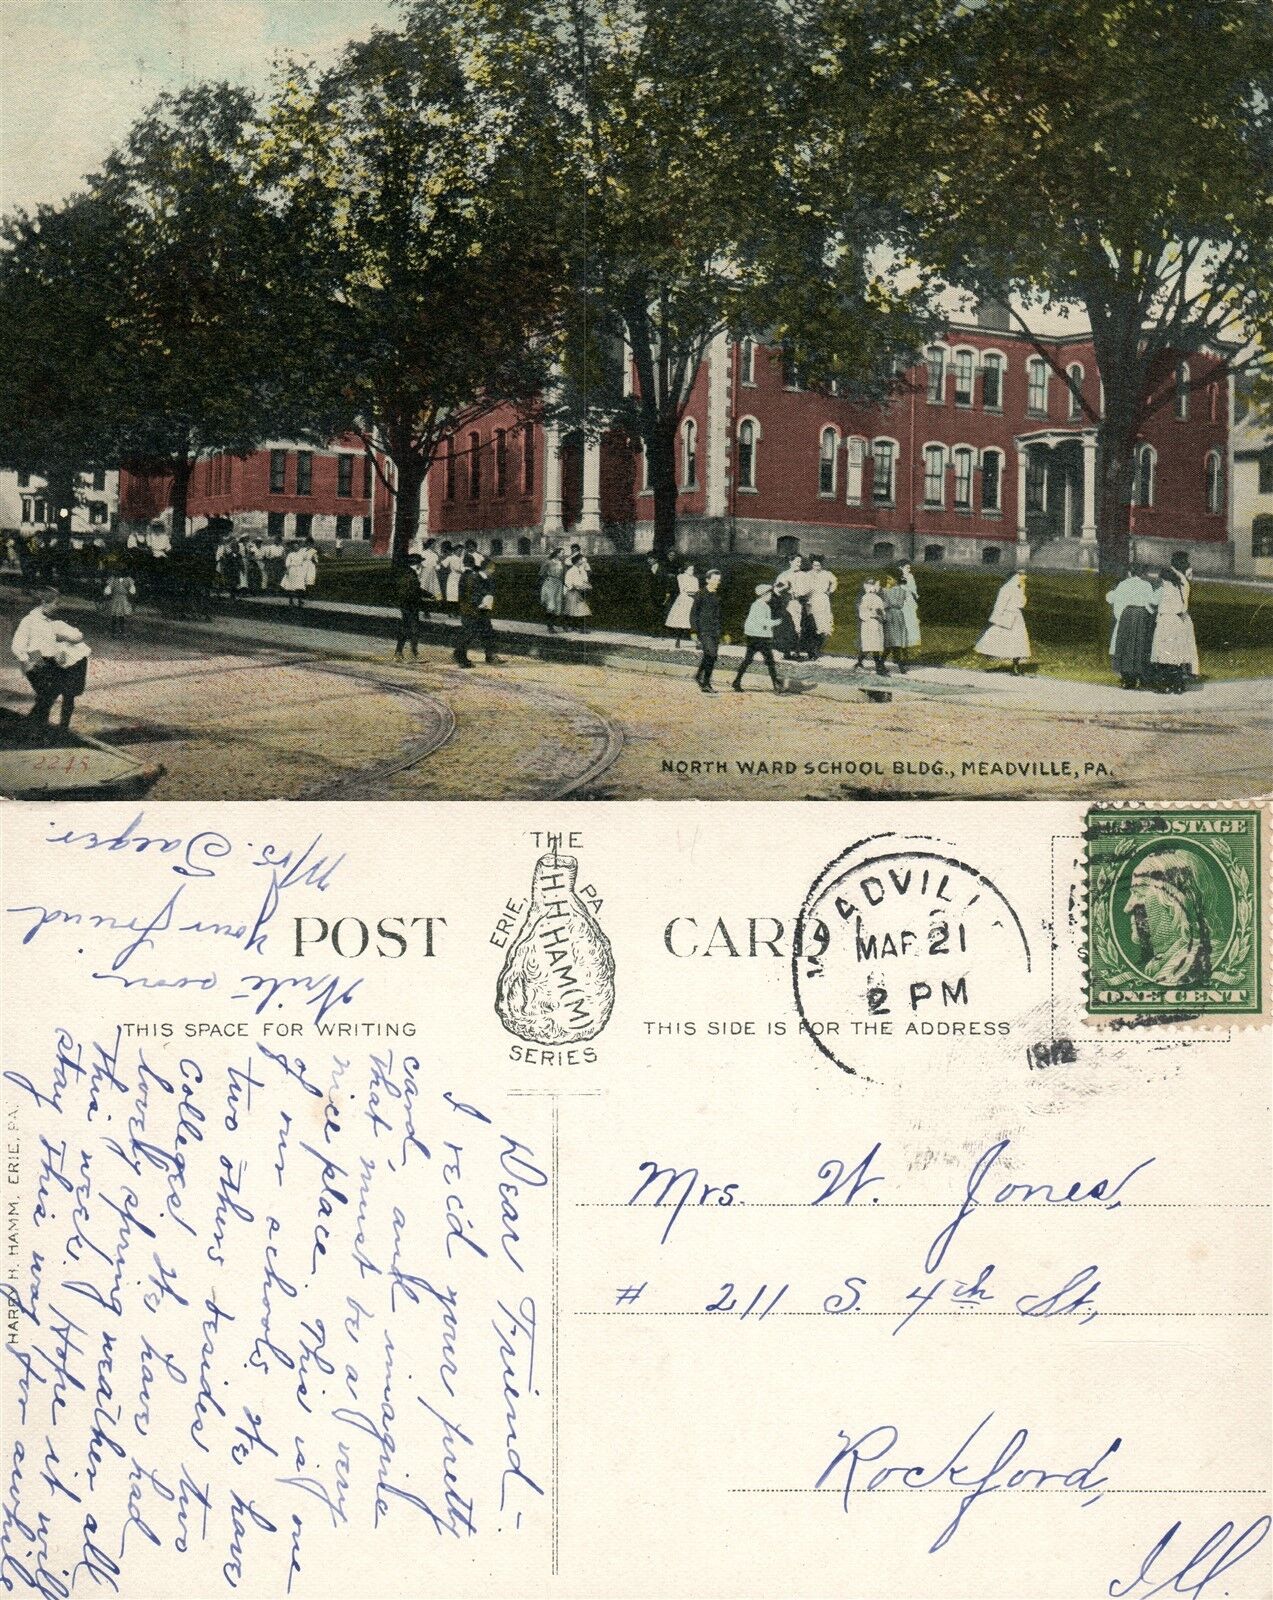 2245
NORTH WARD SCHOOL BLDG., MEADVILLE, PA.
THE
HHHAM(M)
ERIE, PA
SERIES
POST CARD
THIS SPACE FOR WRITING
THIS SIDE IS FOR THE ADDRESS
MEADVILLE
MAR 21
2 PM
1912
POSTAGE
ONE CENT
1
Dear Friend:-
I rec'd your pretty
card, and imagine
that must be a very
nice place. This is one
of our schools. We have
two others besides two
Colleges. We have had
lovely spring weather all
this week. Hope it will
stay this way for awhile
Write soon
your friend
Mrs. Saeger.
HARRY H. HAMM, ERIE, PA.
Mrs. W. Jones,
# 211 S. 4th St.,
Rockford,
Ill.